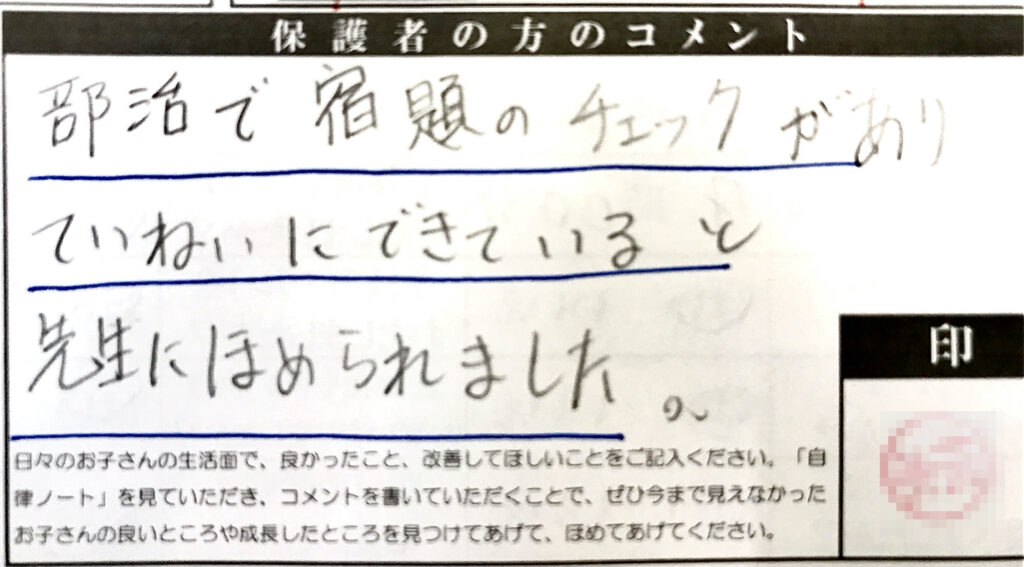 保護者の方のコメント
部治で宿題のチェックがあり
ていねいにできていると
先生にほめられました。
印
日々のお子さんの生活面で、良かったこと、改善してほしいことをご記入ください。「自
律ノート」を見ていただき、コメントを書いていただくことで、ぜひ今まで見えなかった
お子さんの良いところや成長したところを見つけてあげて、ほめてあげてください。